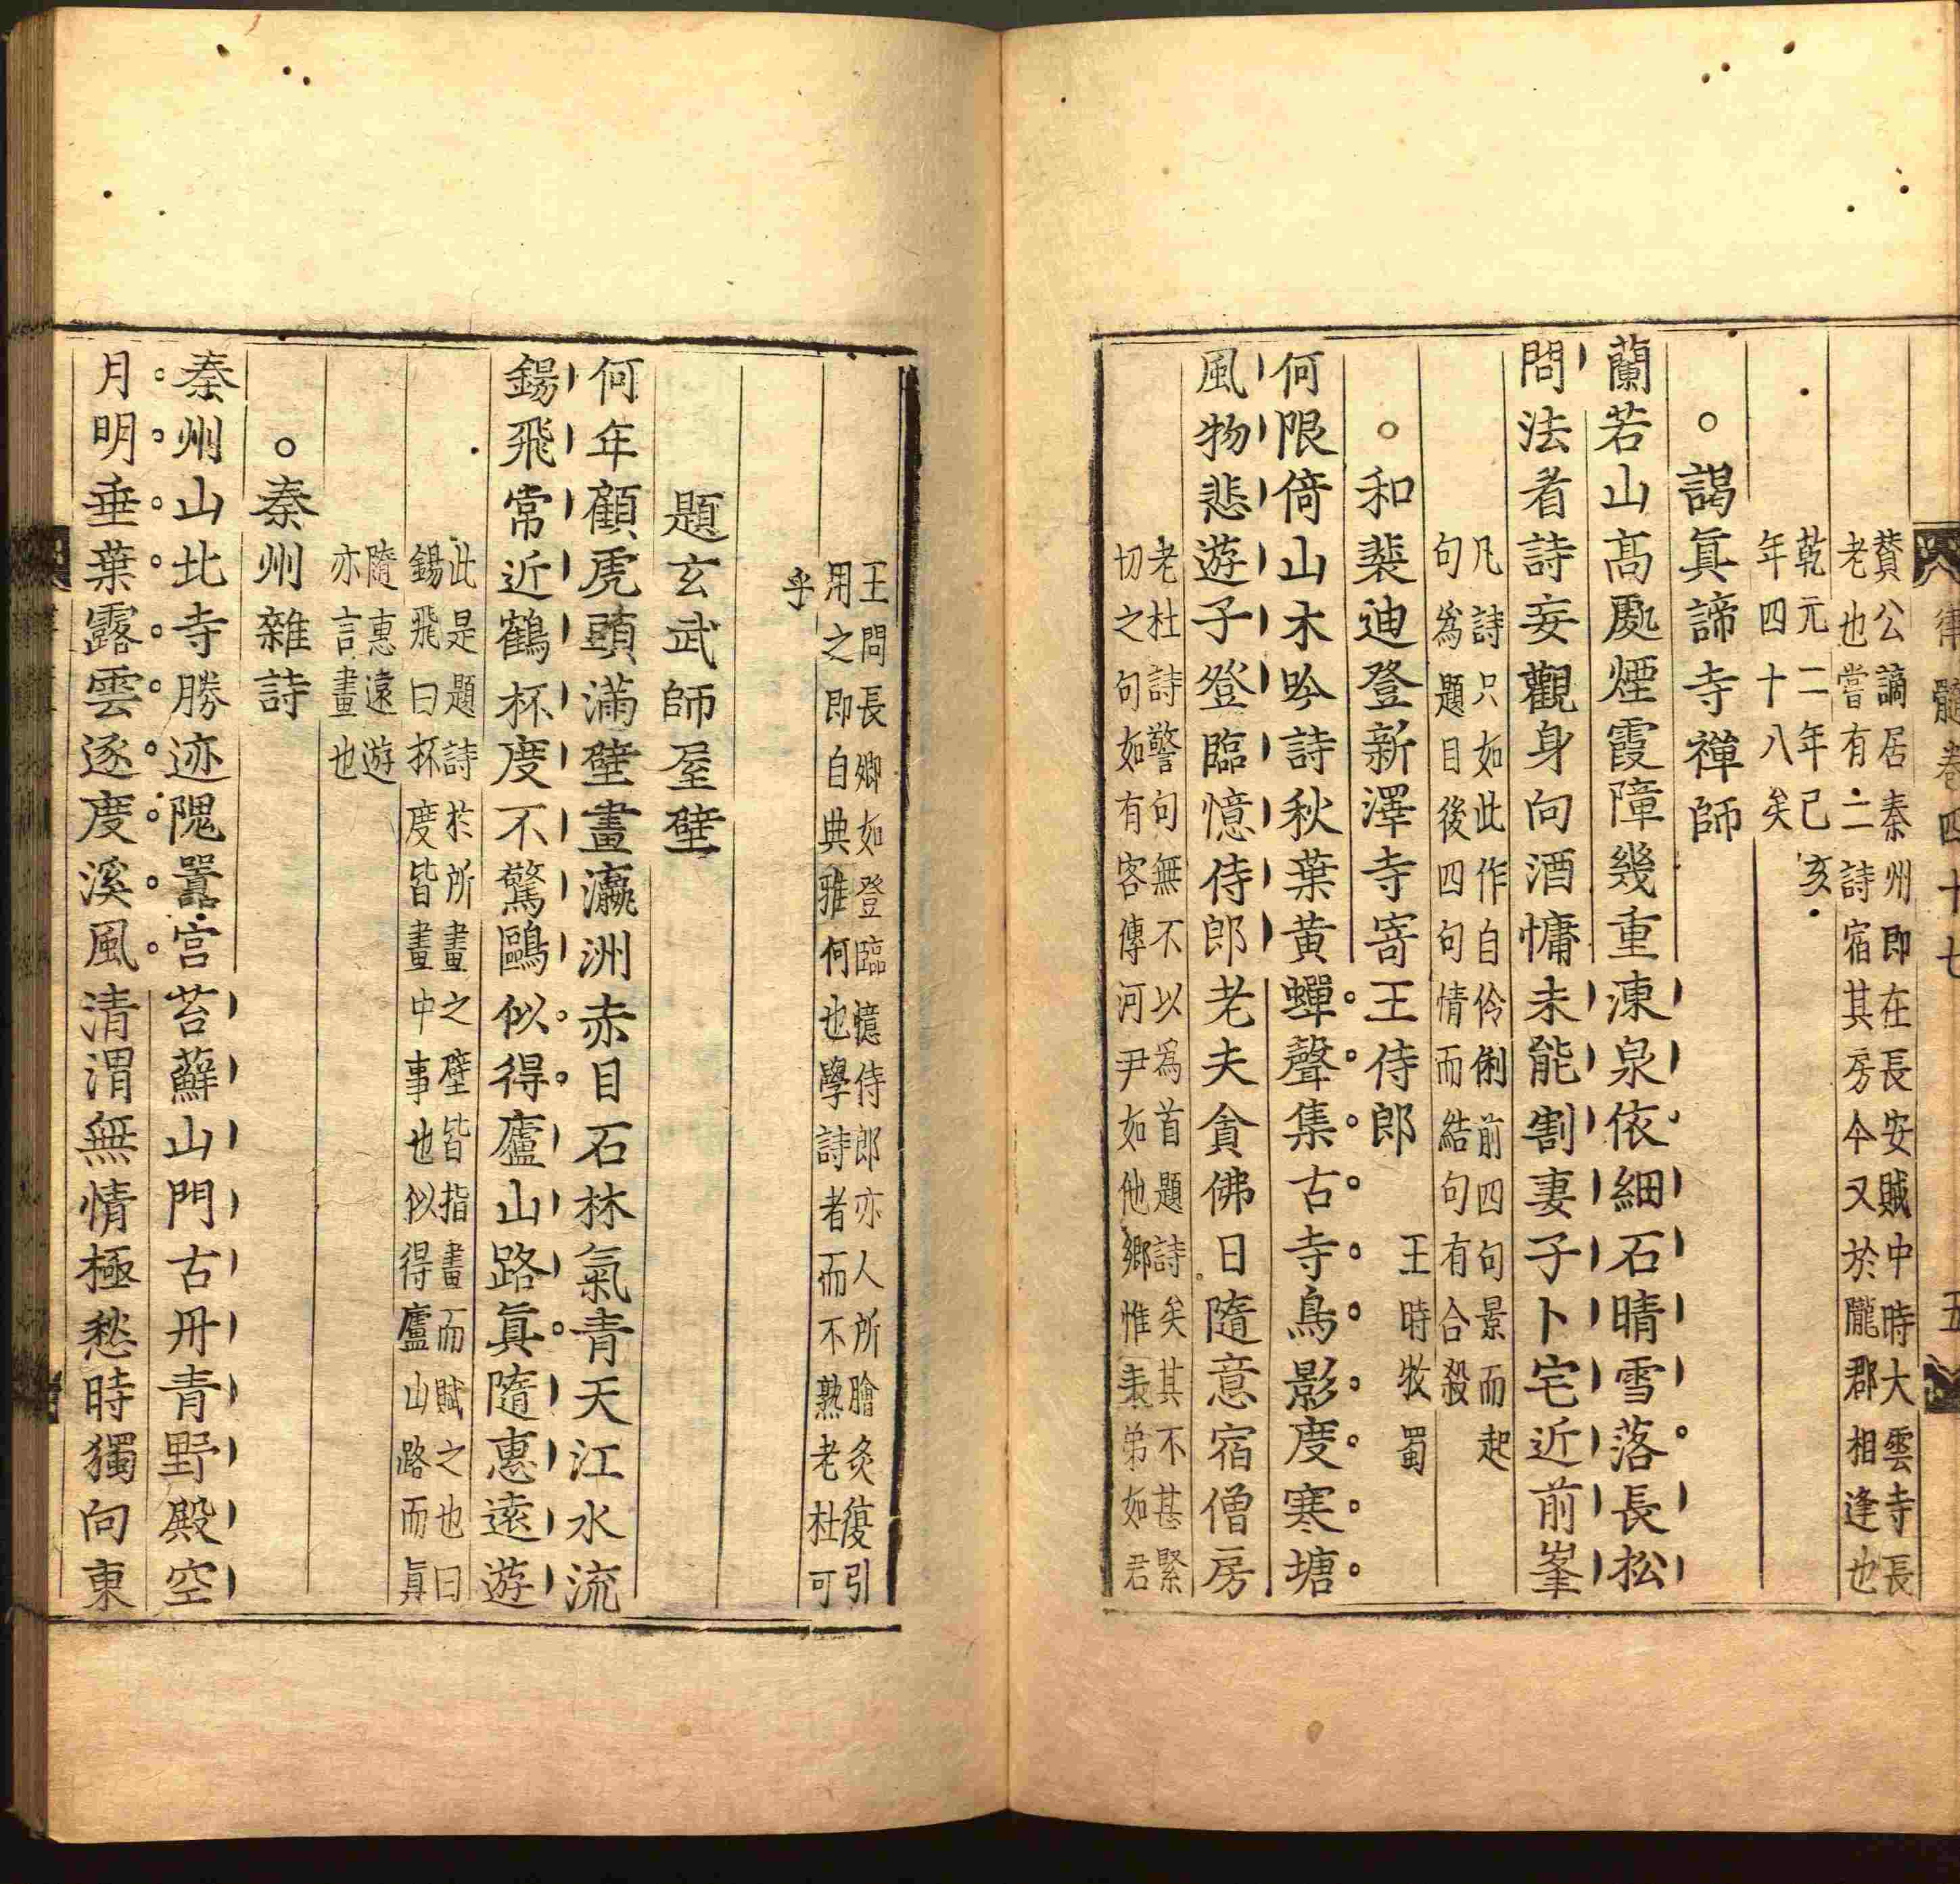 律髓卷四十七
五
賛公謫居秦州即在長安賊中時大雲寺長
老也嘗有二詩宿其房今又於隴郡相逢也
乾元二年己亥
年四十八矣
謁眞諦寺禪師
蘭若山髙處煙霞障幾重凍泉依細石晴雪落長松
問法看詩妄觀身向酒慵未能割妻子卜宅近前峯
凡詩只如此作自伶俐前四句景而起
句爲題目後四句情而結句有合殺
和裴迪登新澤寺寄王侍郎
王時牧蜀
何限倚山木吟詩秋葉黄蟬聲集古寺鳥影度寒塘
風物悲遊子登臨憶侍郎老夫貪佛日隨意宿僧房
老杜詩警句無不以爲首題詩矣其不甚緊
切之句如有客傳河尹如他鄉惟表弟如君
王問長卿如登臨憶侍郎亦人所膾炙復引
用之即自典雅何也學詩者而不熟老杜可
乎
題玄武師屋壁
何年顧虎頭滿壁畫瀛洲赤目石林氣青天江水流
錫飛常近鶴杯度不驚鷗似得廬山路眞隨惠遠遊
此是題詩於所畫之壁皆指畫而賦之也曰
錫飛曰杯度皆畫中事也似得廬山路而眞
隨惠遠遊
亦言畫也
秦州雜詩
秦州山北寺勝迹隗囂宫苔蘚山門古丹青野殿空
月明垂葉露雲逐度溪風清渭無情極愁時獨向東